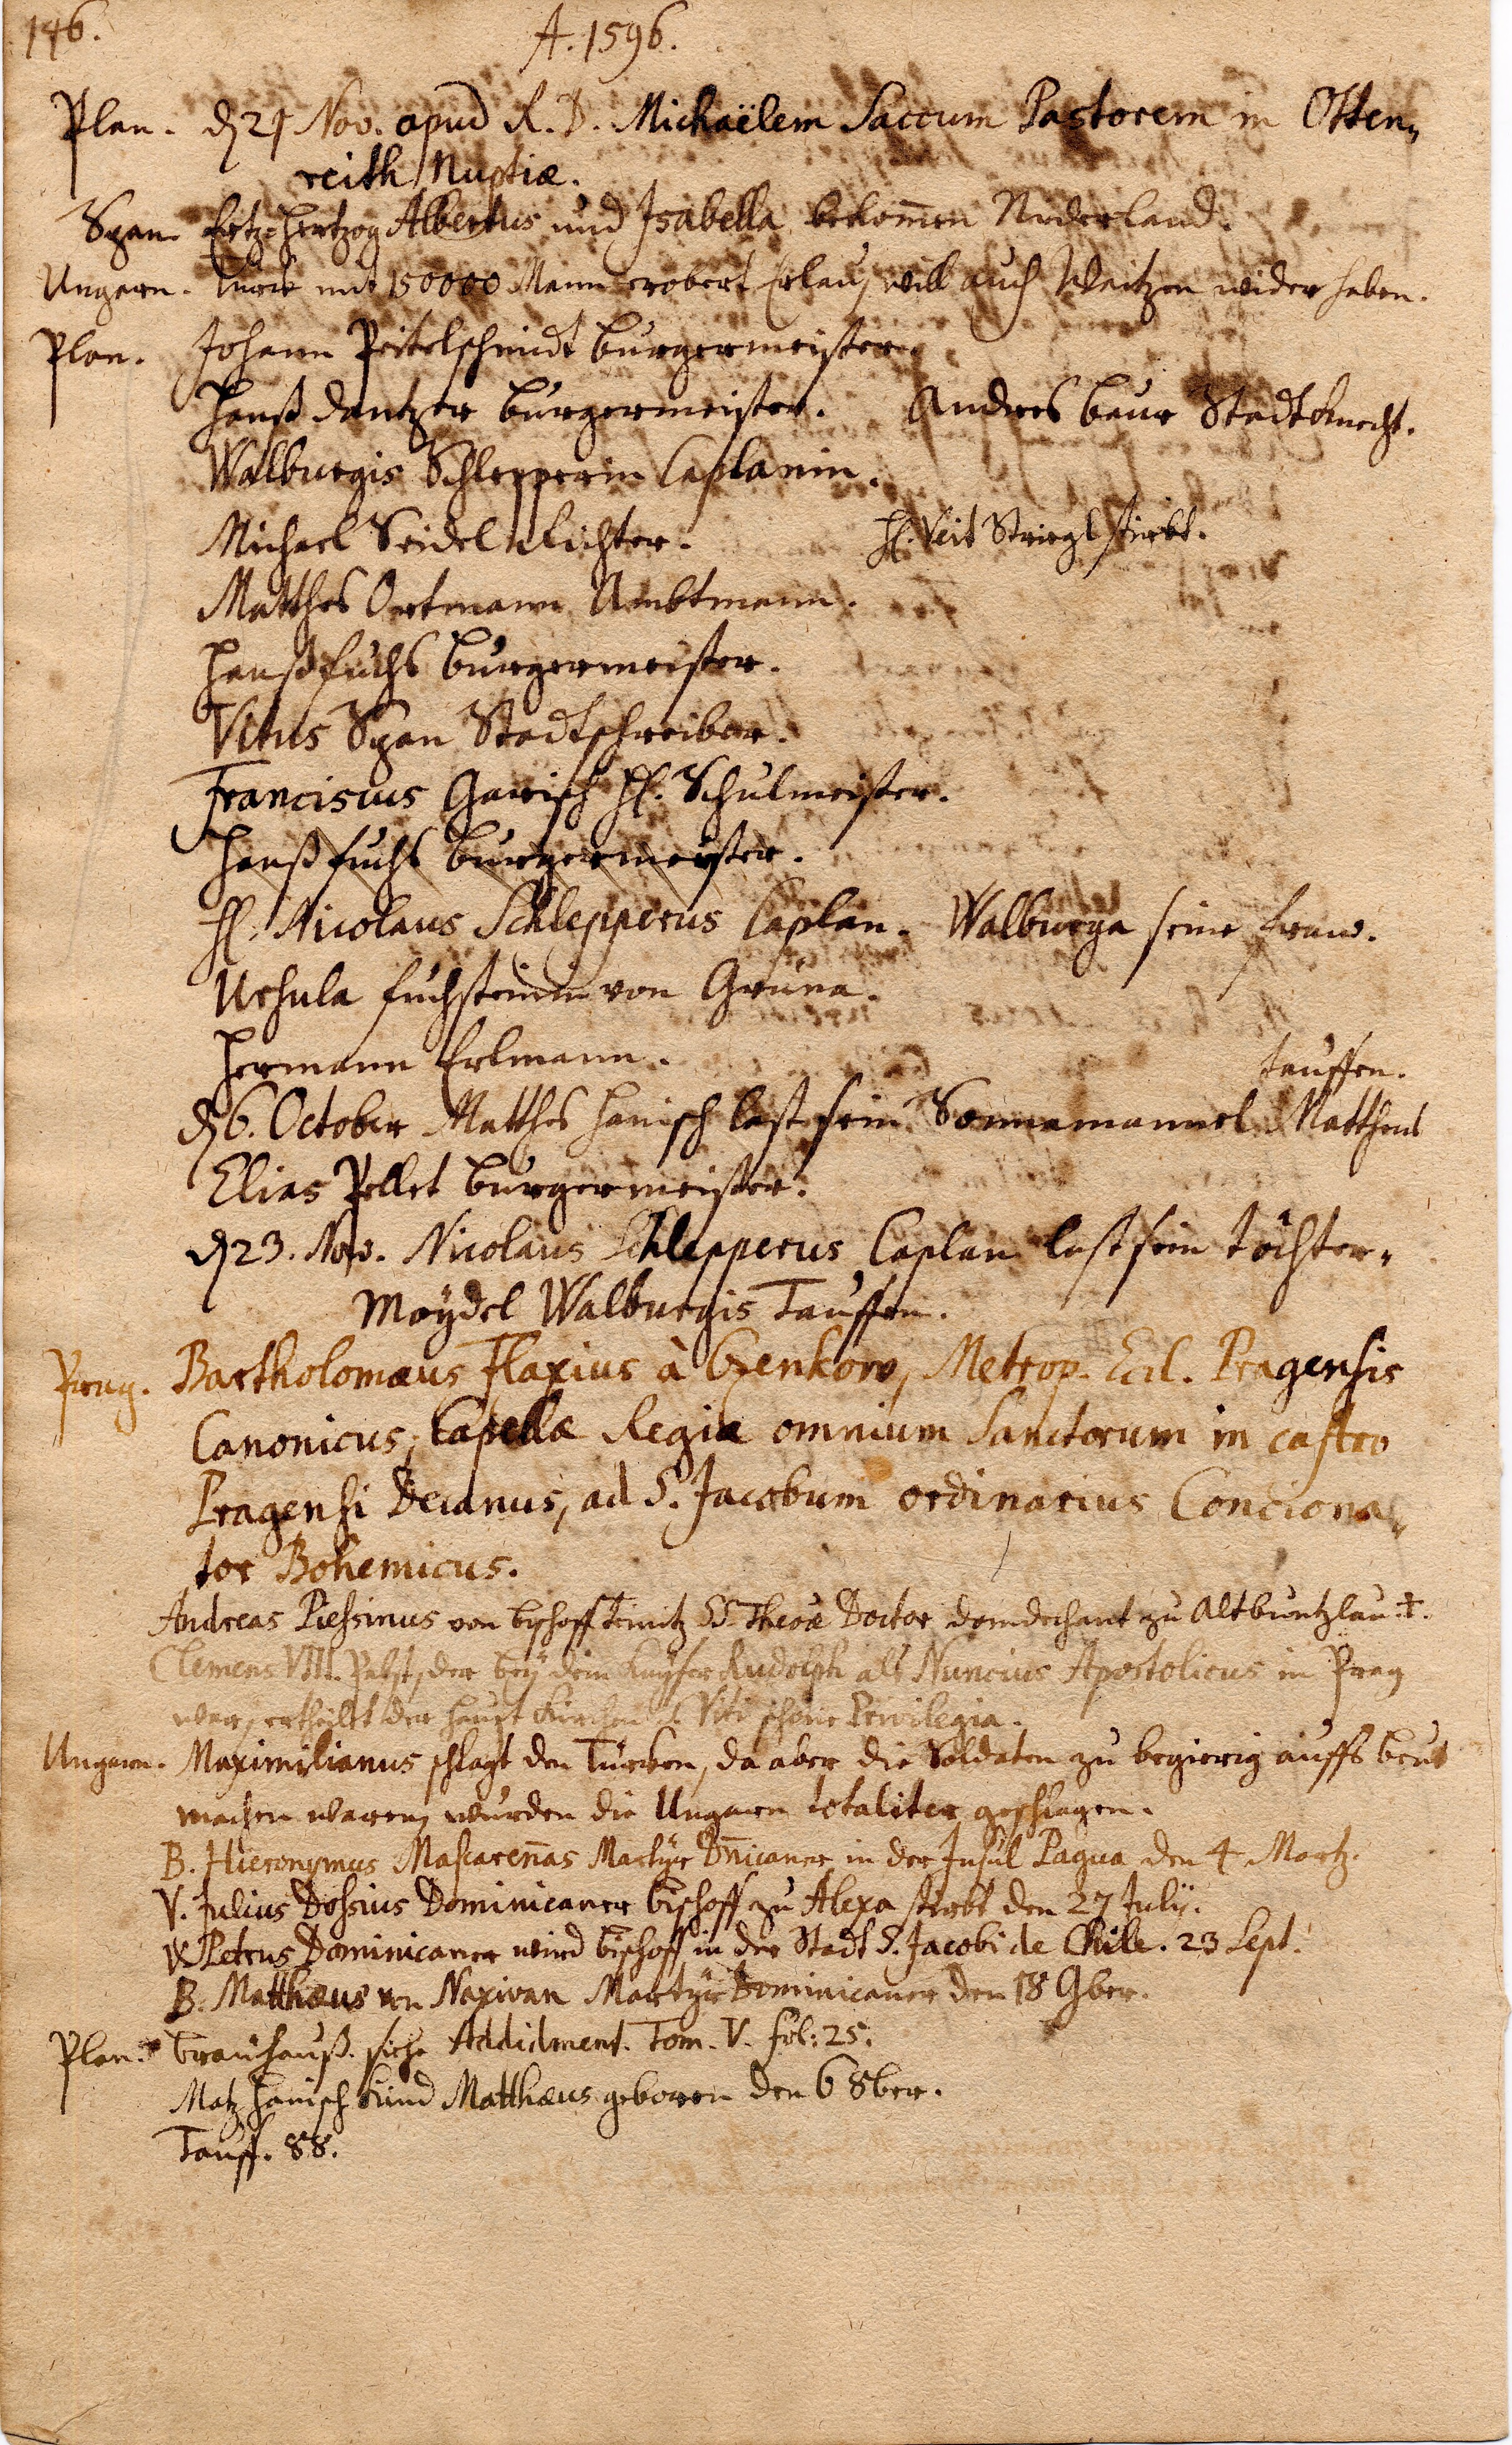 146.
A. 1596.
Plan. d 21 Nov. apud R. D. Michaëlem Saccum Pastorem in Otten„
reith Nuptiæ.
Span. Ertz-Hertzog Albertus und Isabella bekom̄en Niderland.
Ungarn. Türck mit 150000 Mann erobert Erlau, will auch Waitzen wider haben.
Plan. Johann Peitelschmidt burgermeister.
Hanß Dantzer burgermeister. Andres baur Stadtknecht.
Walburgis Schlepperin Caplanin.
Michael Seidel Richter. H. Veit Striegl stirbt.
Matthes Ortmann Ambtmann.
Hanß fuchs burgermeister.
Vitus Span Stadtschreiber.
Franciscus Garisch H. Schulmeister.
Hanß fuchs burgermeister.
H. Nicolaus Schlepperus Caplan. Walburga seine fraw.
Ursula fuchsteinin von Gruna.
Hermann Erlmann.
tauffen.
d 6. October Matthes Hanisch last sein Sonnamannel Mattheus
Elias Pellet burgermeister.
d 23. Nov. Nicolaus Schlepperus Caplan last sein töchter„
Moÿdel Walburgis Tauffen.
Prag. Bartholomæus Flaxius à Czenkow, Metrop. Eccl. Pragensis
Canonicus, Capellæ Regiæ omnium Sanctorum in castro
Pragensi Decanus, ad S. Jacobum ordinarius Conciona„
tor Bohemicus.
Andreas Piessinus von bischoff teinitz SS. Theoæ Doctor domdechant zu Altbuntzlau ✝.
Clemens VIII. Pabst, der beÿ dem Kaÿser Rudolph als Nuncius Apostolicus in Prag
war, ertheilt der haupt kirchen S. Viti schöne Privilegia.
Ungarn. Maximilianus schlagt den Türcken, da aber die Soldaten zu begierig auffs beut
machen waren, wurden die Ungarn totaliter geschlagen.
B. Hieronymus Mascaren̄as Martÿr Dn̄icaner in der Insul Pagua den 4 Martz.
V. Julius Dossius Dominicaner bischoff zu Alexa stirbt den 27 Julij.
V. Petrus Dominicaner wird bischoff in der Stadt S. Jacobi de Chile. 23 Sept.
B. Matthæus von Naxivan Martÿr Dominicaner den 18 9ber.
Plan. brauhauß. siehe Addidment. Tom. V. fol: 25.
Matz Hanisch kind Matthæus geboren den 6 8ber.
Tauff. 88.